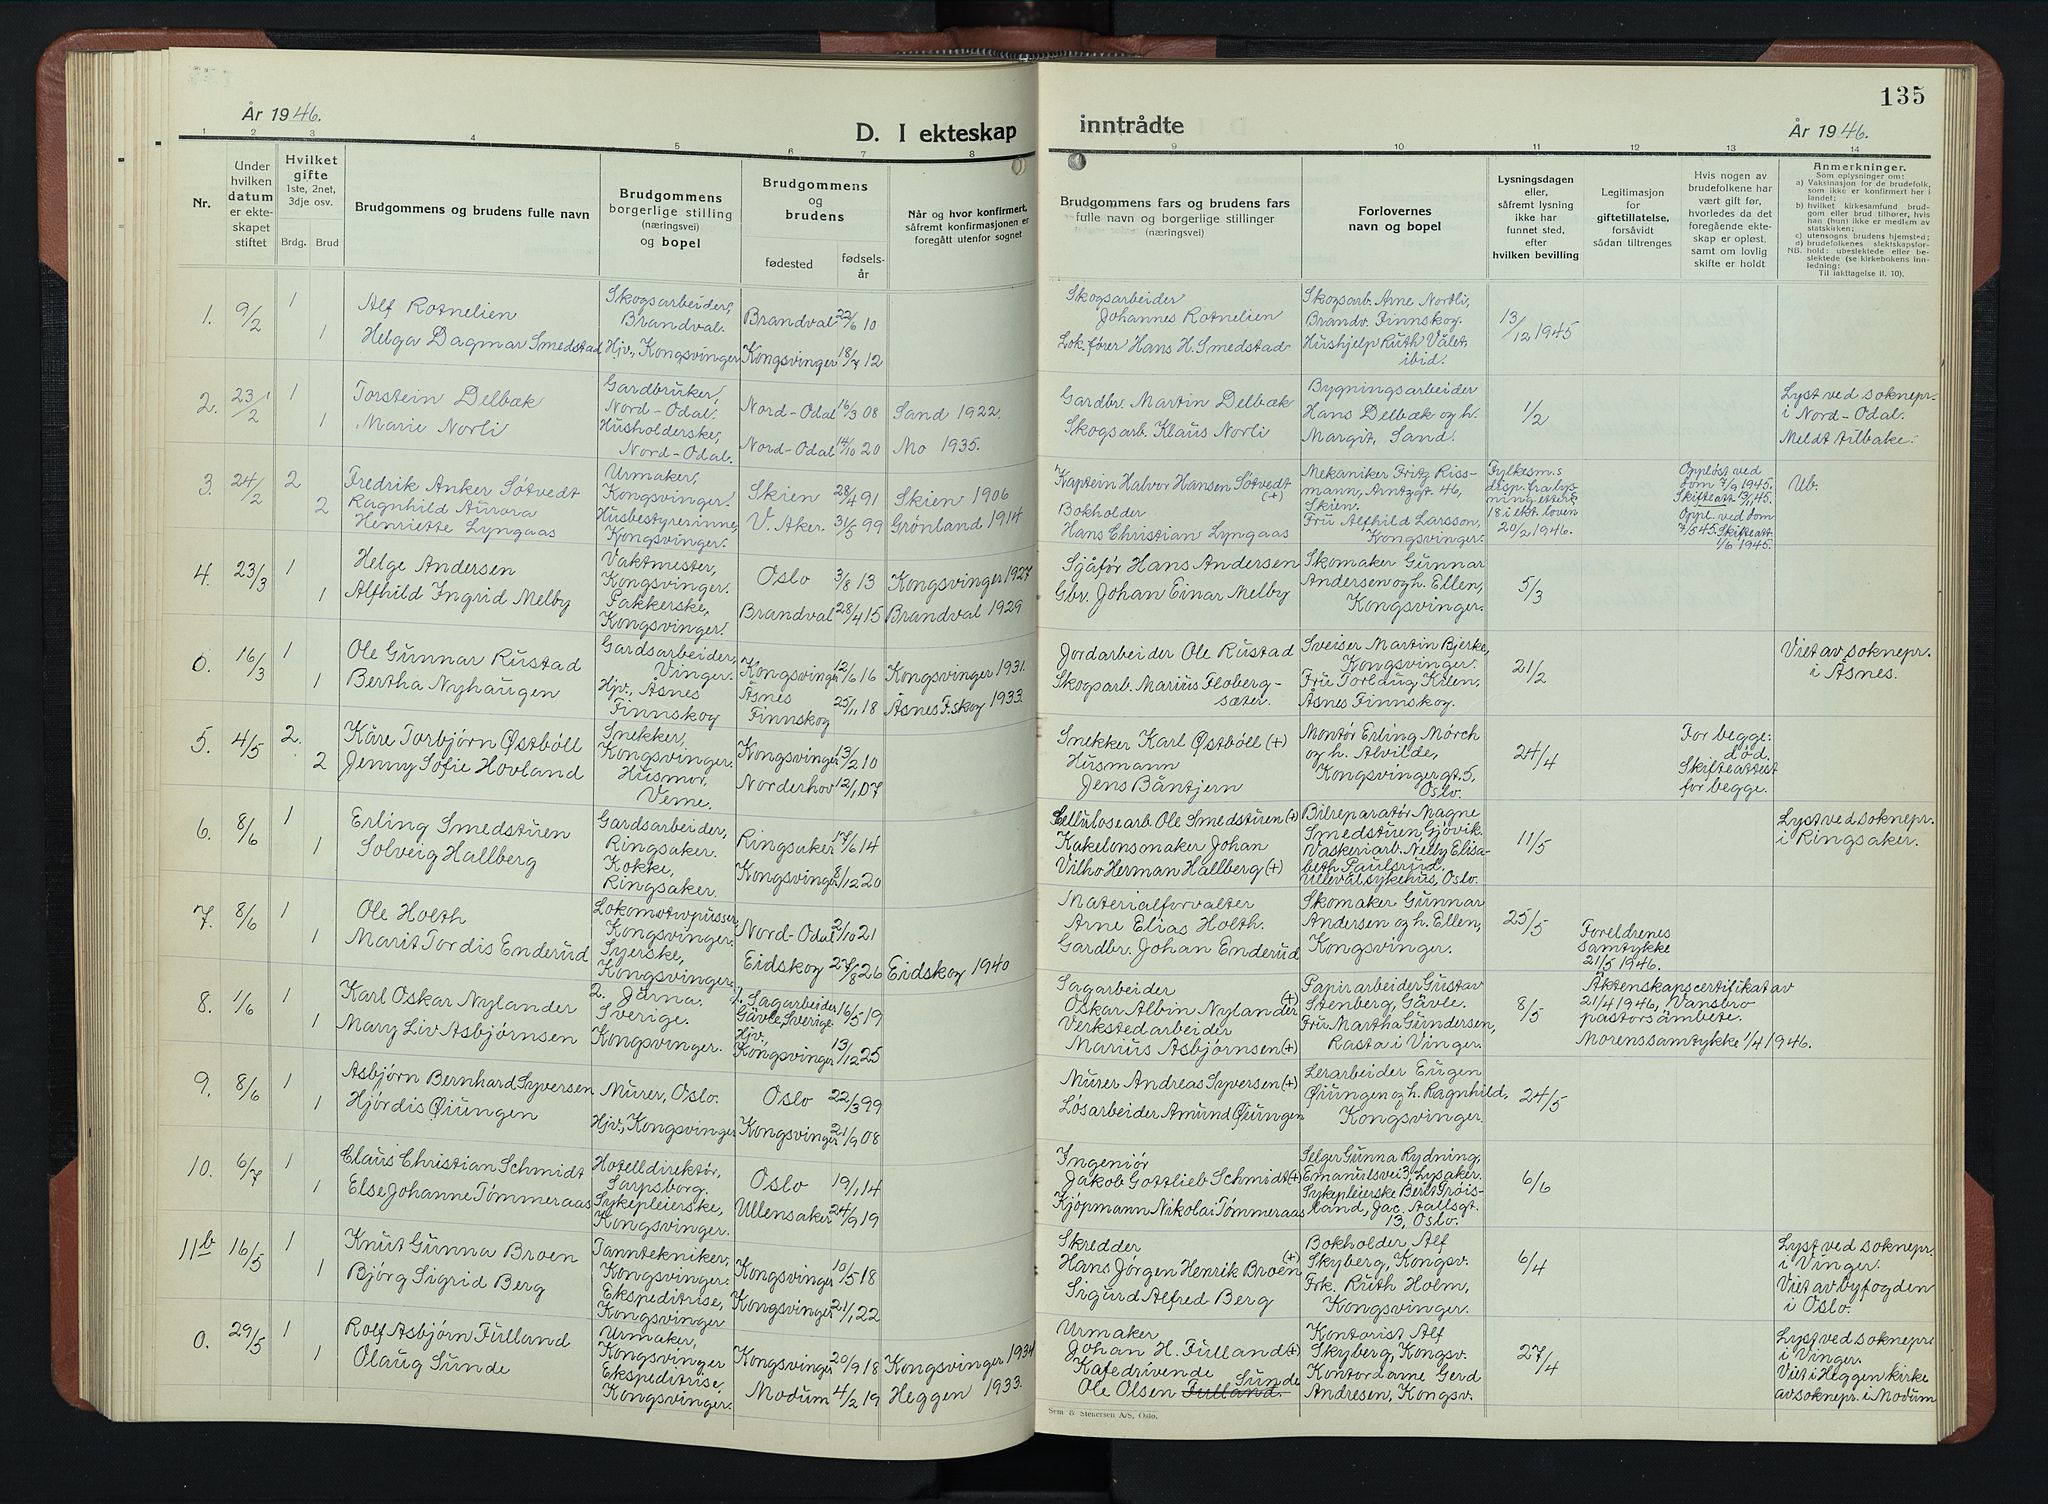 135
År 1946.
D. I ekteskap
inntrådte
År 1946.
1 2 3 4 5 6 7 8 9 10 11 12 13 14
Nr.
Under
hvilken
datum
er ekte-
skapet
stiftet
Hvilket
gifte
1ste, 2net,
3dje osv.
Brdg. Brud
Brudgommens og brudens fulle navn
Brudgommens
borgerlige stilling
(næringsvei)
og bopel
Brudgommens
og
brudens
fødested
fødsels-
år
Når og hvor konfirmert,
såfremt konfirmasjonen er
foregått utenfor sognet
Brudgommens fars og brudens fars
fulle navn og borgerlige stillinger
(næringsvei)
Forlovernes
navn og bopel
Lysningsdagen
eller,
såfremt lysning
ikke har
funnet sted,
efter
hvilken bevilling
Legitimasjon
for
giftetillatelse,
forsåvidt
sådan tiltrenges
Hvis nogen av
brudefolkene har
vært gift før,
hvorledes da det
foregående ekte-
skap er opløst,
samt om lovlig
skifte er holdt
Anmerkninger.
Som oplysninger om:
a) Vaksinasjon for de brudefolk,
som ikke er konfirmert her i
landet;
b) hvilket kirkesamfund brud-
gom eller brud tilhører, hvis
han (hun) ikke er medlem av
statskirken;
c) utensogns brudens hjemsted;
d) brudefolkenes slektskapsfor-
NB. hold: ubeslektede eller be-
slektede (se kirkebokens inn-
ledning:
Til iakttagelse II. 10).
1. 9/2 1 1
Alf Rotnelien
Helga Dagmar Smedstad
Skogsarbeider,
Brandval.
Hjv., Kongsvinger
Brandval 22/6 10
Kongsvinger 18/7 12
Skogsarbeider
Johannes Rotnelien
Lok.fører Hans H. Smedstad
Skogsarb. Arne Nordli,
Brandv. Finnskog.
Hushjelp Ruth Vålet
ibid.
13/12 1945
2. 23/2 1 1
Torstein Delbæk
Marie Norli
Gardbruker,
Nord-Odal.
Husholderske,
Nord-Odal.
Nord-Odal 16/3 08
Nord-Odal 14/10 20
Sand 1922.
Mo 1935.
Gardbr. Martin Delbæk
Skogsarb. Klaus Norli
Bygningsarbeider
Hans Delbæk og h.
Margit, Sand.
1/2
Lyst ved soknepr.
i Nord-Odal.
Meldt tilbake.
3. 24/2 2 2
Fredrik Anker Søtvedt
Ragnhild Aurora
Henriette Lyngaas
Urmaker,
Kongsvinger.
Husbestyrerinne,
Kongsvinger.
Skien 28/4 91
V. Aker. 31/5 99
Skien 1906
Grønland 1914
Kaptein Halvor Hansen Søtvedt
(+)
Bokholder
Hans Christian Lyngaas
Mekaniker Fritz Riss-
mann, Arntzgt. 46,
Skien.
Fru Alfhild Larsson,
Kongsvinger.
Fylkesm.s
disp. fra lys-
ning etter §
18 i ekt.loven
20/2 1946.
Oppløst ved
dom 7/9 1945.
Skifteatt. 13/1 45.
Oppl. ved dom
7/5 45. Skifteatt.
1/6 1945.
Ub.
4. 23/3 1 1
Helge Andersen
Alfhild Ingrid Melby
Vaktmester,
Kongsvinger.
Pakkerske,
Kongsvinger.
Oslo 3/8 13
Brandval 28/4 15
Kongsvinger 1927
Brandval 1929
Sjåfør Hans Andersen
Gbr. Johan Einar Melby
Skomaker Gunnar
Andersen og h. Ellen,
Kongsvinger.
5/3
0. 16/3 1 1
Ole Gunnar Rustad
Bertha Nyhaugen
Gardsarbeider,
Vinger.
Hjv., Åsnes
Finnskog
Kongsvinger 12/6 16
Åsnes
Finnskog 25/11 18
Kongsvinger 1931.
Åsnes F.skog 1933.
Jordarbeider Ole Rustad
Skogsarb. Marius Floberg-
sæter.
Sveiser Martin Bjerke,
Kongsvinger.
Fru Torlaug Kilen,
Åsnes Finnskog.
21/2
Viet av soknepr.
i Åsnes.
5. 4/5 2. 2
Kåre Torbjørn Østbøll
Jenny Sofie Hovland
Snekker,
Kongsvinger.
Husmor,
Veme.
Kongsvinger 13/2 10
Norderhov 12/1 07
Snekker Karl Østbøll (+)
Husmann
Jens Båntjern
Montør Erling Mørch
og h. Alvilde,
Kongsvingergt. 5,
Oslo.
24/4
For begge:
død.
Skifteattest
for begge.
6. 8/6 1 1
Erling Smedstuen
Solveig Hallberg
Gardsarbeider,
Ringsaker.
Kokke,
Ringsaker.
Ringsaker 17/6 14
Kongsvinger 8/12 20
Cellulosearb. Ole Smedstuen (+)
Kakelonsmaker Johan
Vilho Herman Hallberg (+)
Bilreparatør Magne
Smedstuen, Gjøvik.
Vaskeriarb. Nelly Elisa-
beth Paulsrud,
Ullevål sykehus, Oslo.
11/5
Lyst ved soknepr.
i Ringsaker.
7. 8/6 1 1
Ole Holth
Marit Tordis Enderud
Lokomotivpusser
Kongsvinger.
Syerske,
Kongsvinger.
Nord-Odal 2/10 21
Eidskog 27/8 26
Eidskog 1940
Materialforvalter
Arne Elias Holth.
Gardbr. Johan Enderud
Skomaker Gunnar
Andersen og h. Ellen,
Kongsvinger.
25/5
Foreldrenes
samtykke
21/5 1946.
8. 1/6 1 1
Karl Oskar Nylander
Mary Liv Asbjørnsen
2. Järna.
Sverige.
Kongsvinger.
1. Sagarbeider
Gävle, Sverige. 16/5 19
Hjv.,
Kongsvinger 13/12 25
Sagarbeider (+)
Oskar Albin Nylander
Verkstedarbeider
Marius Asbjørnsen (+)
Papirarbeider Gustav
Stenberg, Gävle.
Fru Martha Gundersen,
Rasta i Vinger.
8/5
Äktenskapscertifikat av
21/4 1946, Vansbro
pastorsämbete.
Morens samtykke 1/4 1946.
9. 8/6 1 1
Asbjørn Bernhard Syversen
Hjørdis Øiungen
Murer, Oslo.
Hjv., Kongsvinger
Oslo 22/3 99
Kongsvinger 21/9 08
Murer Andreas Syversen (+)
Løsarbeider Amund Øiungen
Lerarbeider Eugen
Øiungen og h. Ragnhild,
Kongsvinger.
24/5
10. 6/7 1 1
Claus Christian Schmidt
Else Johanne Tømmeraas
Hotelldirektør,
Sarpsborg.
Sykepleierske,
Kongsvinger.
Oslo 19/1 14
Ullensaker 24/9 19
Ingeniør
Jakob Gottlieb Schmidt (+)
Kjøpmann Nikolai Tømmeraas
Selger Gunna Rydning,
Emanuelsvei 3, Lysaker.
Sykepleierske Berit Frøis-
land, Jac. Aallsgt.
13, Oslo.
6/6
11b 16/5 1 1
Knut Gunna Broen
Bjørg Sigrid Berg
Tanntekniker,
Kongsvinger.
Ekspeditrise,
Kongsvinger
Kongsvinger 10/5 18
Kongsvinger 21/1 22
Skredder (+)
Hans Jørgen Henrik Broen
Sigurd Alfred Berg
Bokholder Alf
Skyberg, Kongsv.
Frk. Ruth Holm,
Kongsvinger.
6/4
Lyst ved soknepr.
i Vinger.
Viet av byfogden
i Oslo.
0. 29/5 1 1
Rolf Asbjørn Fulland
Olaug Sunde
Urmaker,
Kongsvinger
Ekspeditrise,
Kongsvinger.
Kongsvinger 20/9 18
Modum 4/2 19
Kongsvinger 1934
Heggen 1933.
Urmaker
Johan H. Fulland (+)
Kafedrivende Sunde
Ole Olsen Fulland.
Kontorist Alf
Skyberg, Kongsv.
Kontordame Gerd
Andresen, Kongsv.
27/4
Lyst ved soknepr.
i Vinger.
Viet i Heggen kirke
av soknepr. i Modum
Sem & Stenersen A/S, Oslo.